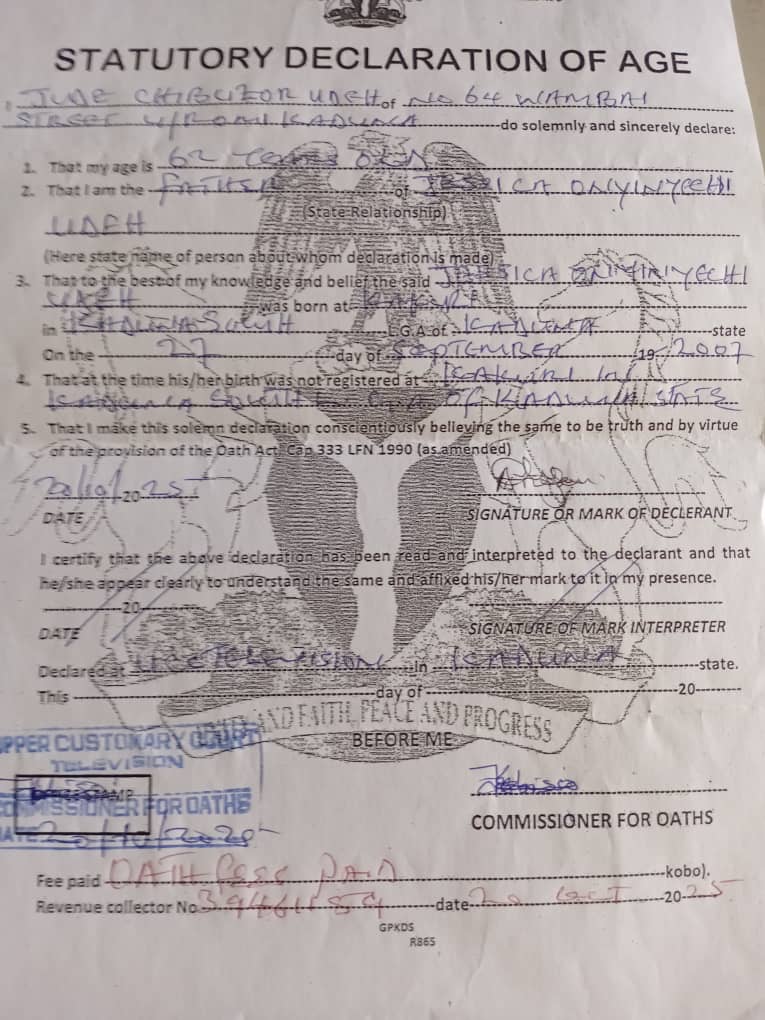 STATUTORY DECLARATION OF AGE
I, JUDE CHIBUZOR UDEH of NO 64 WAMBAI
STREET KADUNA do solemnly and sincerely declare:
1. That my age is 62 YEARS OLD
2. That I am the FATHER of JESSICA ONYINYECHI
(State Relationship)
UDEH
(Here state name of person about whom declaration is made)
3. That to the best of my knowledge and belief the said JESSICA ONYINYECHI
UDEH was born at KAKURI
in KADUNA SOUTH L.G.A of KADUNA state
On the 27 day of SEPTEMBER 19 2007
4. That at the time his/her birth was not registered at KAKURI IN
KADUNA SOUTH L.G.A OF KADUNA STATE
5. That I make this solemn declaration conscientiously believing the same to be truth and by virtue
of the provision of the Oath Act. Cap 333 LFN 1990 (as amended)
20/10/20 25
DATE SIGNATURE OR MARK OF DECLERANT
I certify that the above declaration has been read and interpreted to the declarant and that
he/she appear clearly to understand the same and affixed his/her mark to it in my presence.
20
DATE SIGNATURE OF MARK INTERPRETER
Declared at UCC TELEVISION in KADUNA state.
This day of 20
AND FAITH, PEACE AND PROGRESS
BEFORE ME
UPPER CUSTOMARY COURT
TELEVISION
COMMISSIONER FOR OATHS
DATE 20/10/2025
COMMISSIONER FOR OATHS
Fee paid OATH FEES PAID kobo).
Revenue collector No date 20 OCT 20 25
GPKDS
R865